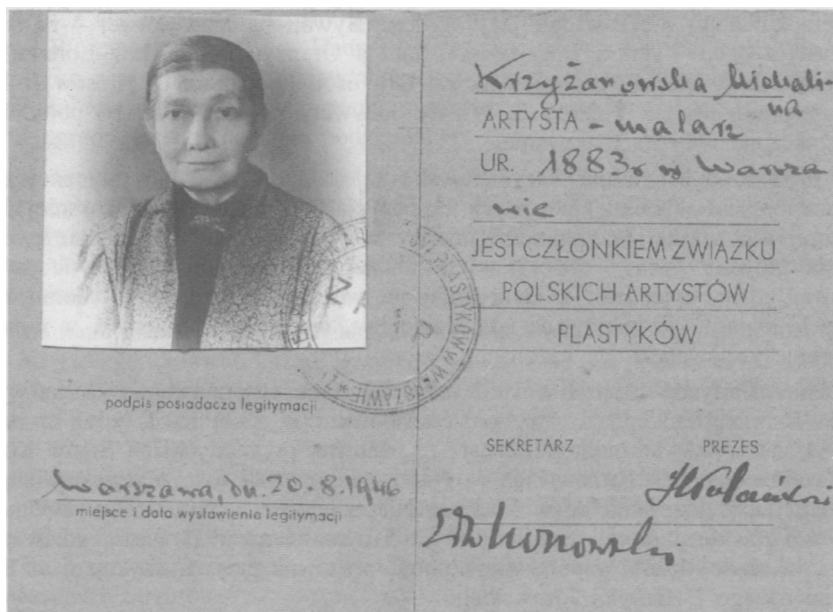 Krzyżanowska Michali-
na
ARTYSTA - malarz
UR. 1883 r w Warsza
wie
JEST CZŁONKIEM ZWIĄZKU
POLSKICH ARTYSTÓW
PLASTYKÓW
PLASTYKÓW W WARSZAWIE
podpis posiadacza legitymacji
Warszawa, dn. 20-8.1946
miejsce i data wystawienia legitymacji
SEKRETARZ PREZES